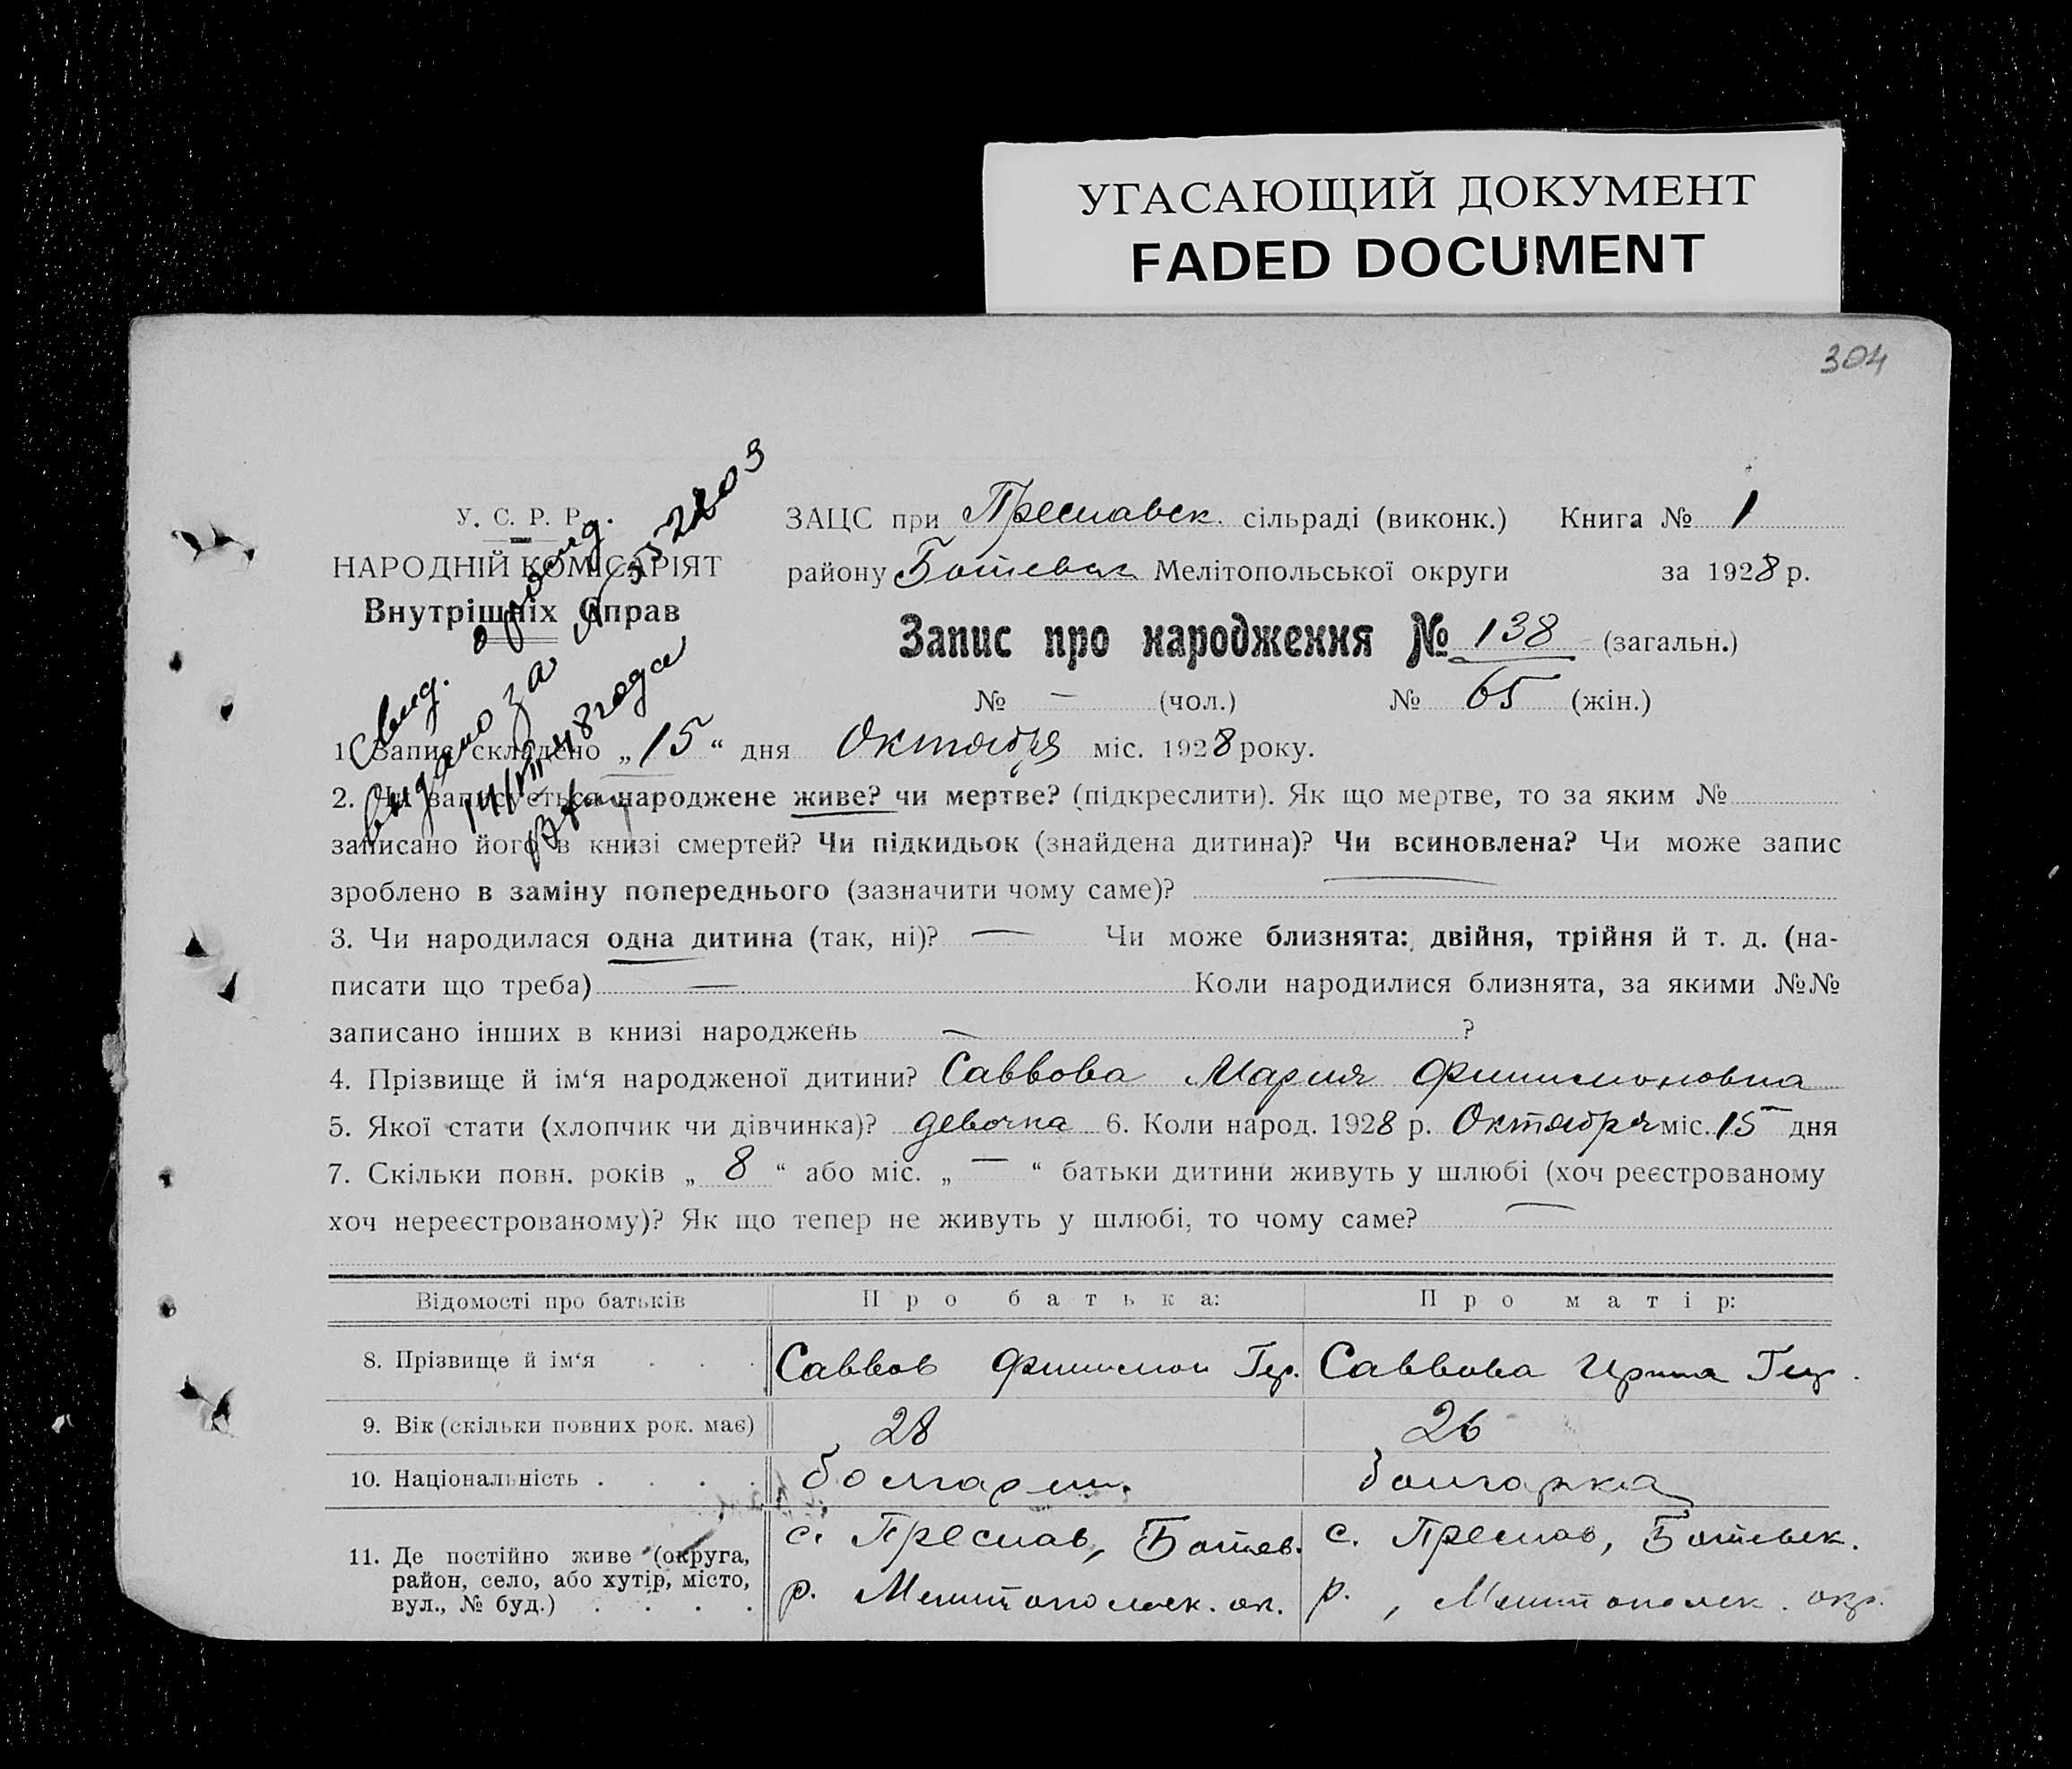 УГАСАЮЩИЙ ДОКУМЕНТ
FADED DOCUMENT
304
У. С. Р. Р.
НАРОДНІЙ КОМІСАРІЯТ
Внутрішніх Справ
ЗАЦС при Преславск. сільраді (виконк.) Книга № 1
району Ботевск Мелітопольської округи за 1928 р.
Запис про народження № 138 (загальн.)
№ — (чол.) № 65 (жін.)
Свид.
выдано за №
14/VII 48 года
1. Запис складено „15“ дня Октября міс. 1928 року.
2. Чи записується народжене живе? чи мертве? (підкреслити). Як що мертве, то за яким №
записано його в книзі смертей? Чи підкидьок (знайдена дитина)? Чи всиновлена? Чи може запис
зроблено в заміну попереднього (зазначити чому саме)? —
3. Чи народилася одна дитина (так, ні)? — Чи може близнята: двійня, трійня й т. д. (на-
писати що треба) — Коли народилися близнята, за якими №№
записано інших в книзі народжень — ?
4. Прізвище й ім‘я народженої дитини? Саввова Мария Филимоновна
5. Якої стати (хлопчик чи дівчинка)? девочка 6. Коли народ. 1928 р. Октября міс. 15 дня
7. Скільки повн. років „ 8 “ або міс. „ — “ батьки дитини живуть у шлюбі (хоч реєстрованому
хоч нереєстрованому)? Як що тепер не живуть у шлюбі, то чому саме? —
Відомості про батьків Про батька: Про матір:
8. Прізвище й ім‘я . . . Саввов Филимон Саввова Ирина
9. Вік (скільки повних рок. має) 28 26
10. Національність . . . . болгарин. болгарка
11. Де постійно живе (округа, район, село, або хутір, місто, вул., № буд.) . . . .
с. Преслав, Ботев. с. Преслав, Ботевск.
р. Мелитопольск. ок. р. , Мелитопольск. окр.